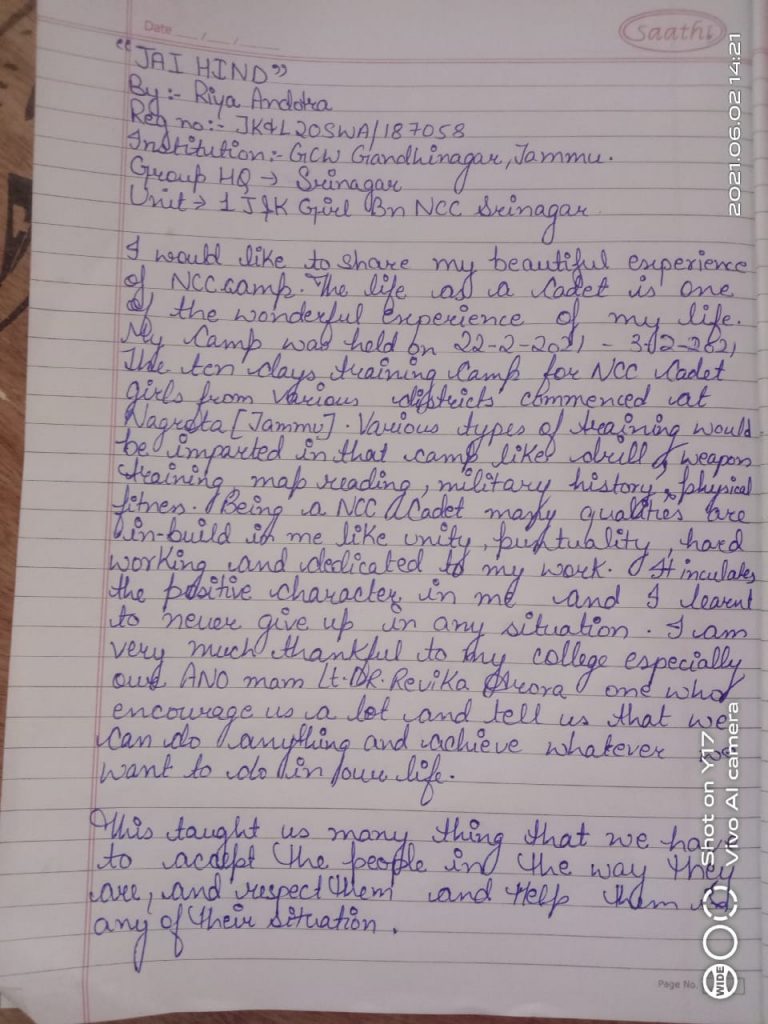 Date __/__/____
Saathi
"JAI HIND"
By:- Riya Andotra
Reg no:- JK&L20SWA/187058
Institution:- GCW Gandhinagar, Jammu.
Group HQ → Srinagar
Unit → 1 J&K Girl Bn NCC Srinagar
I would like to share my beautiful experience
of NCC camp. The life as a Cadet is one
of the wonderful experience of my life.
My Camp was held on 22-2-2021 - 3-02-2021
The ten days training Camp for NCC Cadet
girls from various districts commenced at
Nagrota [Jammu]. Various types of training would
be imparted in that camp like drill & weapon
training, map reading, military history, physical
fitness. Being a NCC Cadet many qualities are
in-build in me like unity, puntuality, hard
working and dedicated to my work. It inculates
the positive character in me and I learnt
to never give up in any situation. I am
very much thankful to my college especially
our ANO mam Lt. DR. Revika Arora one who
encourage us a lot and tell us that we
can do anything and achieve whatever we
want to do in our life.
This taught us many thing that we have
to accept the people in the way they
are, and respect them and help them in
any of their situation.
Page No.
2021.06.02 14:21
Shot on Y17
Vivo AI camera
WIDE